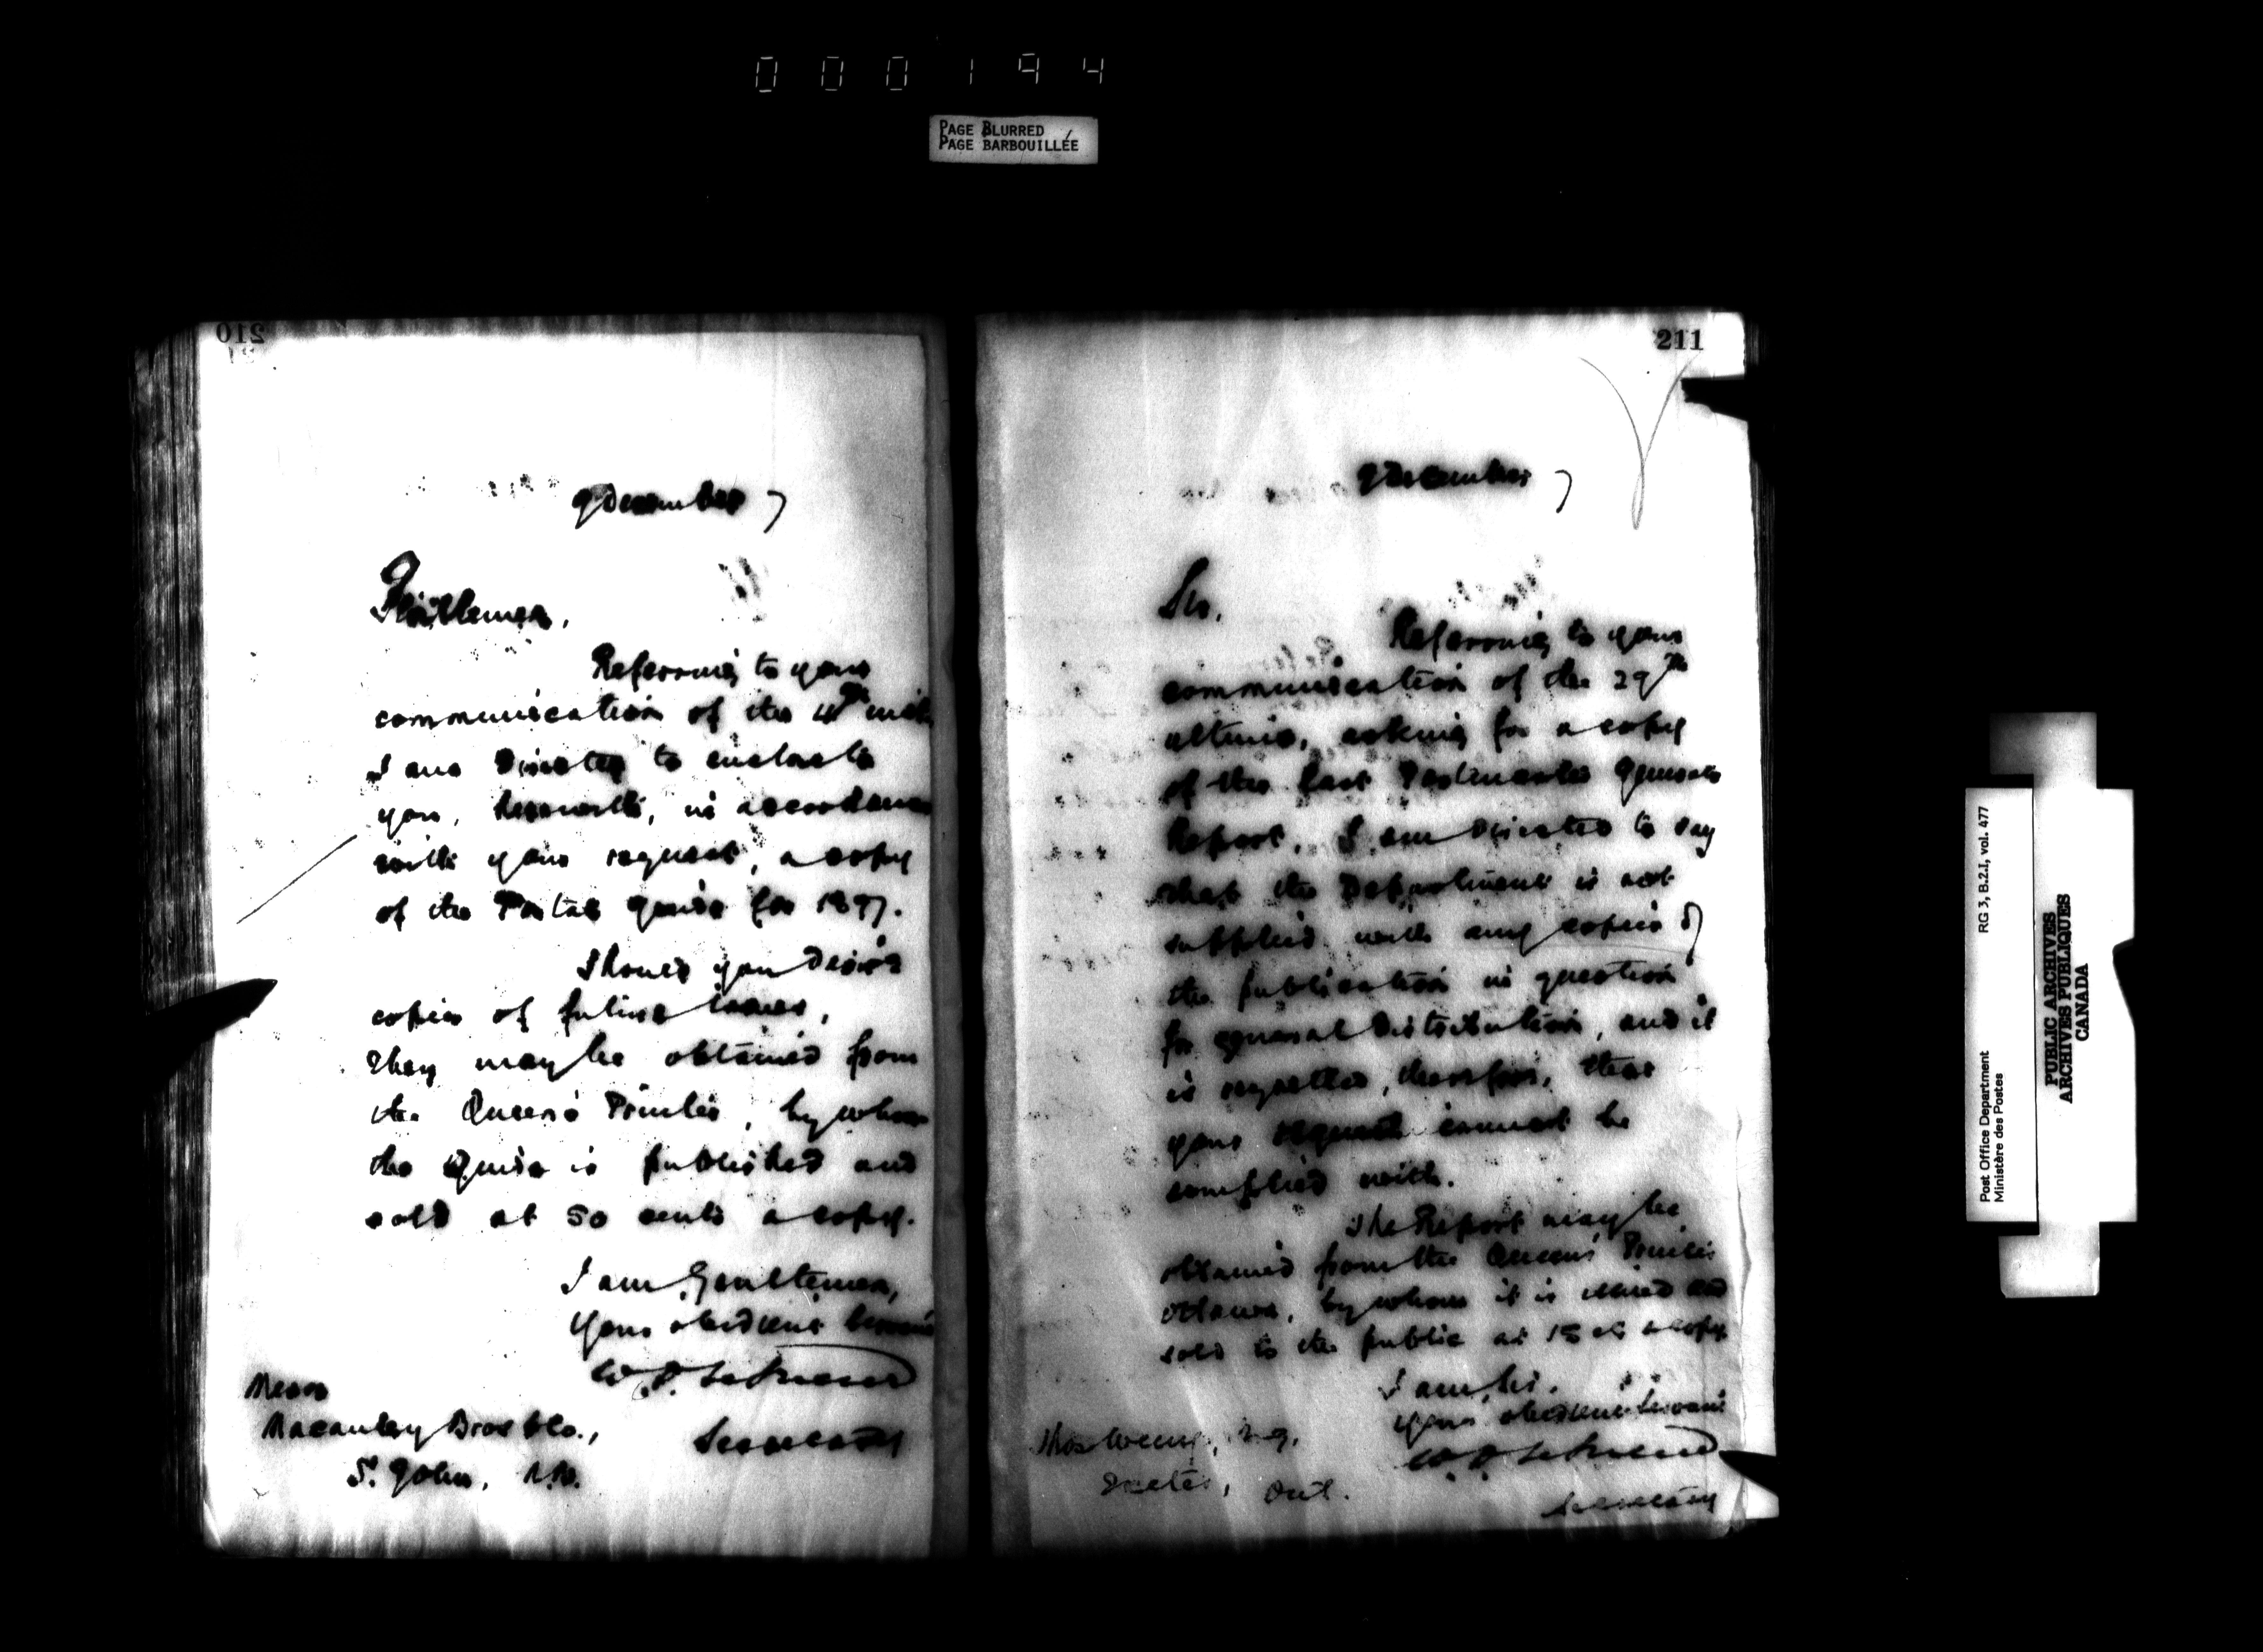 000194
PAGE BLURRED
PAGE BARBOUILLÉE
210
9 December 7
Gentlemen,
Referring to your
communication of the 4th inst.
I am directed to enclose to
you, herewith, in accordance
with your request, a copy
of the Postal Guide for 1897.
Should you desire
copies of future issues,
they may be obtained from
the Queen's Printer, by whom
the Guide is published and
sold at 50 cents a copy.
I am, Gentlemen,
Your obedient Servant
Secretary
Messrs
Macaulay Bros & Co.,
St. John, N.B.
211
9 December 7
Sir,
Referring to your
communication of the 29th
ultimo, asking for a copy
of the last Postmaster General's
Report, I am directed to say
that the Department is not
supplied with any copies of
the publication in question
for general distribution, and it
is regretted, therefore, that
your request cannot be
complied with.
The Report may be
obtained from the Queen's Printer
Ottawa, by whom it is issued and
sold to the public at 15 cts a copy
I am, Sir,
Your obedient Servant
Secretary
Thos
Exeter, Ont.
Post Office Department
Ministère des Postes
RG 3, B.2.I, vol. 477
PUBLIC ARCHIVES
ARCHIVES PUBLIQUES
CANADA